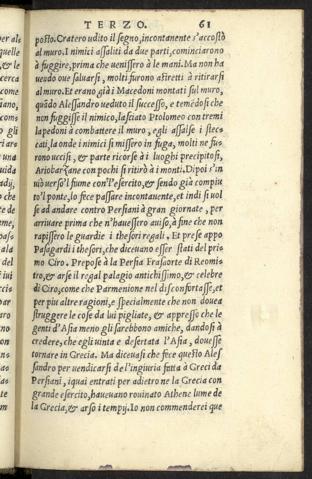 TERZO. 61
posto. Cratero udito il segno, incontanente s'accostò
al muro. I nimici assaliti da due parti, cominciarono
à fuggire, prima che uenissero à le mani. Ma non ha
uendo oue saluarsi, molti furono astretti à ritirarsi
al muro. Et erano già i Macedoni montati su'l muro,
quãdo Alessandro ueduto il successo, e temẽdosi che
non fuggisse il nimico, lasciato Ptolomeo con tremi
la pedoni à combattere il muro, egli assalse i stec-
cati, la onde i nimici si missero in fuga, molti ne fu-
rono uccisi, & parte ricorse à i luoghi precipitosi,
Ariobarzane con pochi si ritirò à i monti. Dipoi s'in
uiò uerso'l fiume con l'esercito, & sendo già compiu
to'l ponte, lo fece passare incontanente, et indi si uol
se ad andare contro Persiani à gran giornate, per
arriuare prima che n'hauessero auiso, à fine che non
rapissero le guardie i thesori regali. Et prese appo
Pasagardi i thesori, che diceuano esser stati del prio
mo Ciro. Prepose à la Persia Frasaorte di Reomis
tro, & arse il regal palagio antichissimo, & celebre
di Ciro, come che Parmenione nel disconfortasse, et
per piu altre ragioni, e specialmente che non douea
struggere le cose da lui pigliate, & appresso che le
genti d'Asia meno gli sarebbono amiche, dandosi à
credere, che egli uinta e desertata l'Asia, douesse
tornare in Grecia. Ma diceuasi che fece questo Ales
sandro per uendicarsi de l'ingiuria fatta à Greci da
Persiani, i quai entrati per adietro ne la Grecia con
grande esercito, haueuano rouinato Athene lume de
la Grecia, & arso i tempij. Io non commenderei que